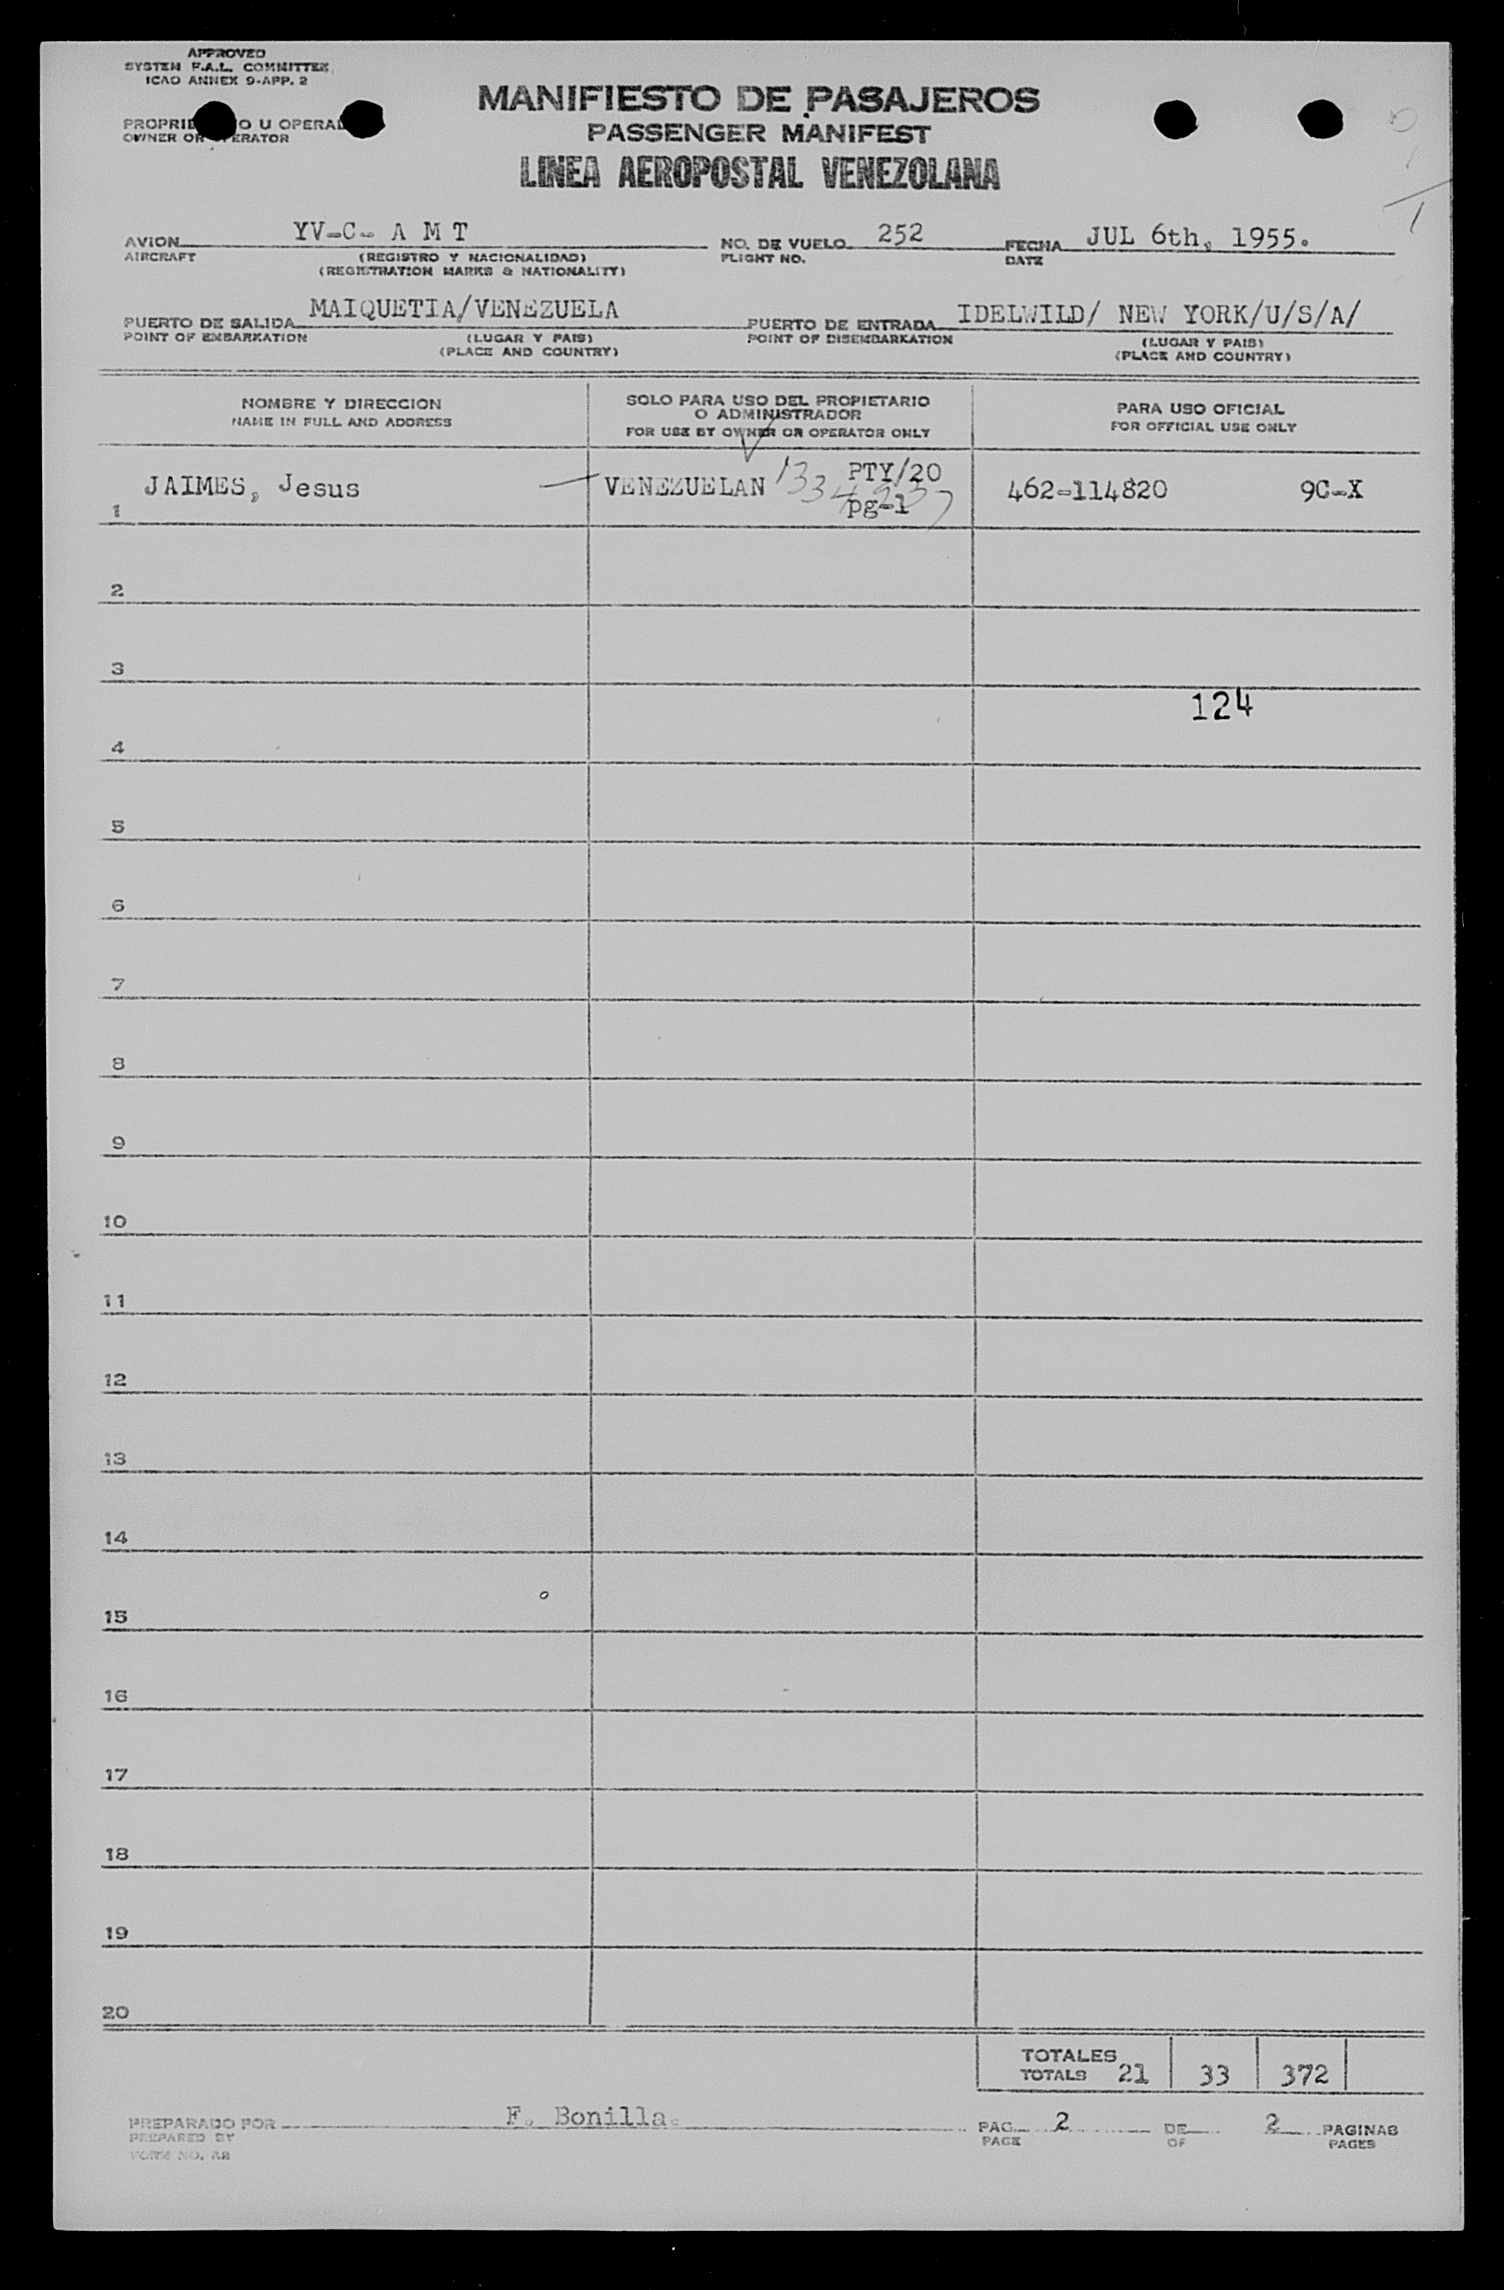 APPROVED
SYSTEM F.A.L. COMMITTEE
ICAO ANNEX 9-APP. 2
MANIFIESTO DE PASAJEROS
PROPRIE O U OPERA
OWNER OR ERATOR
PASSENGER MANIFEST
LINEA AEROPOSTAL VENEZOLANA
AVION YV-C- A M T NO. DE VUELO 252 FECHA JUL 6th, 1955.
AIRCRAFT (REGISTRO Y NACIONALIDAD) FLIGHT NO. DATE
(REGISTRATION MARKS & NATIONALITY)
PUERTO DE SALIDA MAIQUETIA/VENEZUELA PUERTO DE ENTRADA IDELWILD/ NEW YORK/U/S/A/
POINT OF EMBARKATION (LUGAR Y PAIS) POINT OF DISEMBARKATION (LUGAR Y PAIS)
(PLACE AND COUNTRY) (PLACE AND COUNTRY)
NOMBRE Y DIRECCION SOLO PARA USO DEL PROPIETARIO PARA USO OFICIAL
O ADMINISTRADOR
NAME IN FULL AND ADDRESS FOR USE BY OWNER OR OPERATOR ONLY FOR OFFICIAL USE ONLY
PTY/20
JAIMES, Jesus VENEZUELAN 462-114820 9C-X
1 pg-1
2
3
124
4
5
6
7
8
9
10
11
12
13
14
15
16
17
18
19
20
TOTALES
TOTALS 21 33 372
PREPARADO POR F. Bonilla. PAG. 2 DE 2 PAGINAS
PREPARED BY PAGE OF PAGES
FORM NO. AB